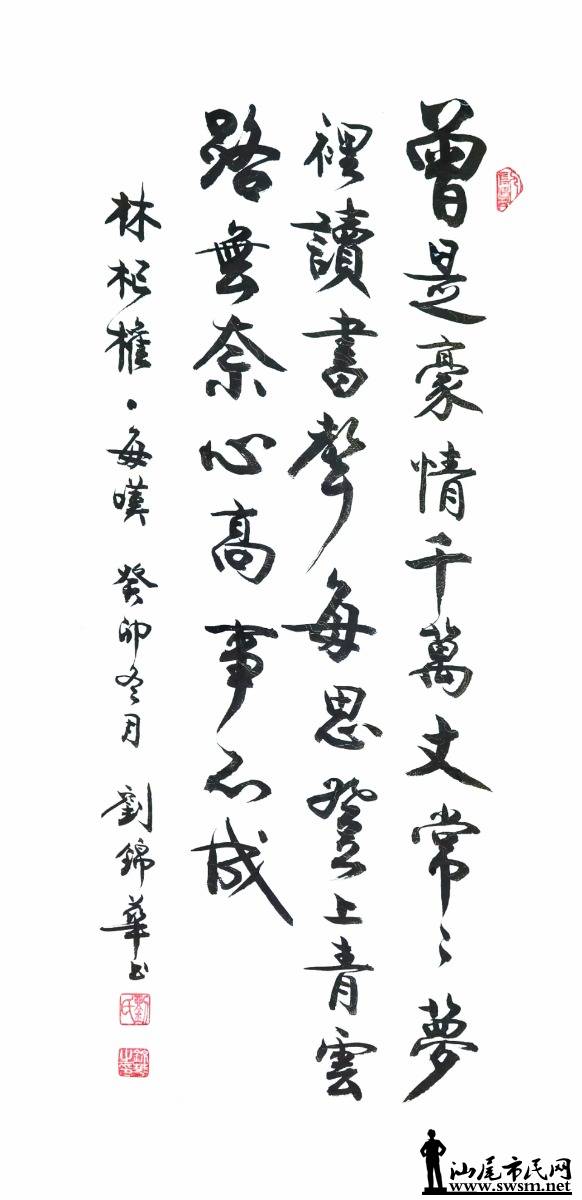 曾是豪情千萬丈常〻夢
裡讀書聲每思登上青雲
路無奈心高事不成
林彬權·每嘆 癸卯冬月 劉錦華书
劉氏
汕尾市民网
www.swsm.net